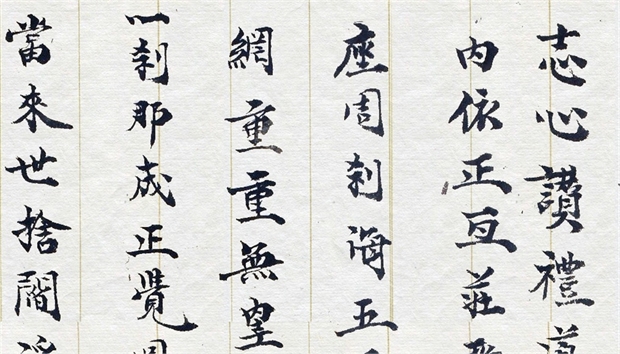 志心讃禮
内依正互莊
座周刹海五
網重重無
一刹那成正覺
當來世捨閻